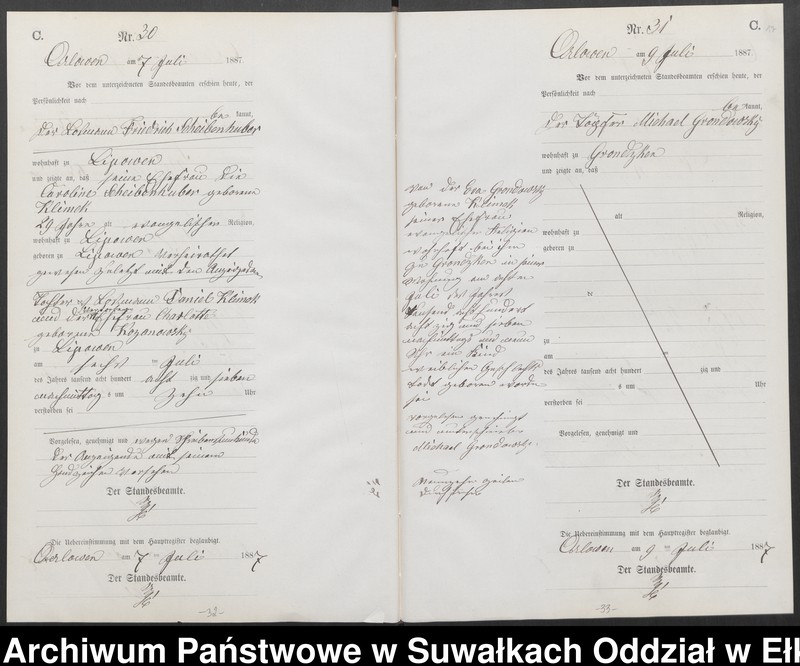 C.
Nr. 30
Orlowen am 7 Juli 1887
Vor dem unterzeichneten Standesbeamten erschien heute, der
Persönlichkeit nach
be kannt,
der Losmann Friedrich Scheibenhuber
wohnhaft zu Lipowen
und zeigte an, daß seine Ehefrau die
Caroline Scheibenhuber geborene
Klimek
29 Jahre alt evangelischer Religion,
wohnhaft zu Lipowen
geboren zu Lipowen verheirathet
gewesen zuletzt mit dem Anzeigenden
Tochter des Losmann Daniel Klimek
und der Ehefrau Charlotte
geborenen
zu Lipowen
am sechs ten Juli
des Jahres tausend acht hundert acht zig und sieben
nachmittag s um zehn Uhr
verstorben sei
Vorgelesen, genehmigt und wegen Schreibensunkunde
des Anzeigenden mit seinem
Handzeichen versehen
Der Standesbeamte.
Die Uebereinstimmung mit dem Hauptregister beglaubigt.
Orlowen am 7 ten Juli 1887
Der Standesbeamte.
-32-
Nr. 31
C.
Orlowen am 9 Juli 1887
Vor dem unterzeichneten Standesbeamten erschien heute, der
Persönlichkeit nach
be kannt,
der Michael Grondowsky
wohnhaft zu Grondzken
und zeigte an, daß
von der Eva Grondowsky
geborene Klimek
seiner Ehefrau
evangelischer Religion
wohnhaft bei ihm
zu Grondzken in seiner
Wohnung am achten
Juli des Jahres
tausend acht hundert
acht zig und sieben
nachmittags um neun
Uhr ein Kind
weiblichen Geschlechts
todt geboren worden
sei
vorgelesen genehmigt
und unterschrieben
Michael Grondowsky
alt Religion,
wohnhaft zu
geboren zu
de
zu
am ten
des Jahres tausend acht hundert zig und
s um Uhr
verstorben sei
Vorgelesen, genehmigt und
Der Standesbeamte.
Die Uebereinstimmung mit dem Hauptregister beglaubigt.
Orlowen am 9 ten Juli 1887
Der Standesbeamte.
-33-
Archiwum Państwowe w Suwałkach Oddział w Eł